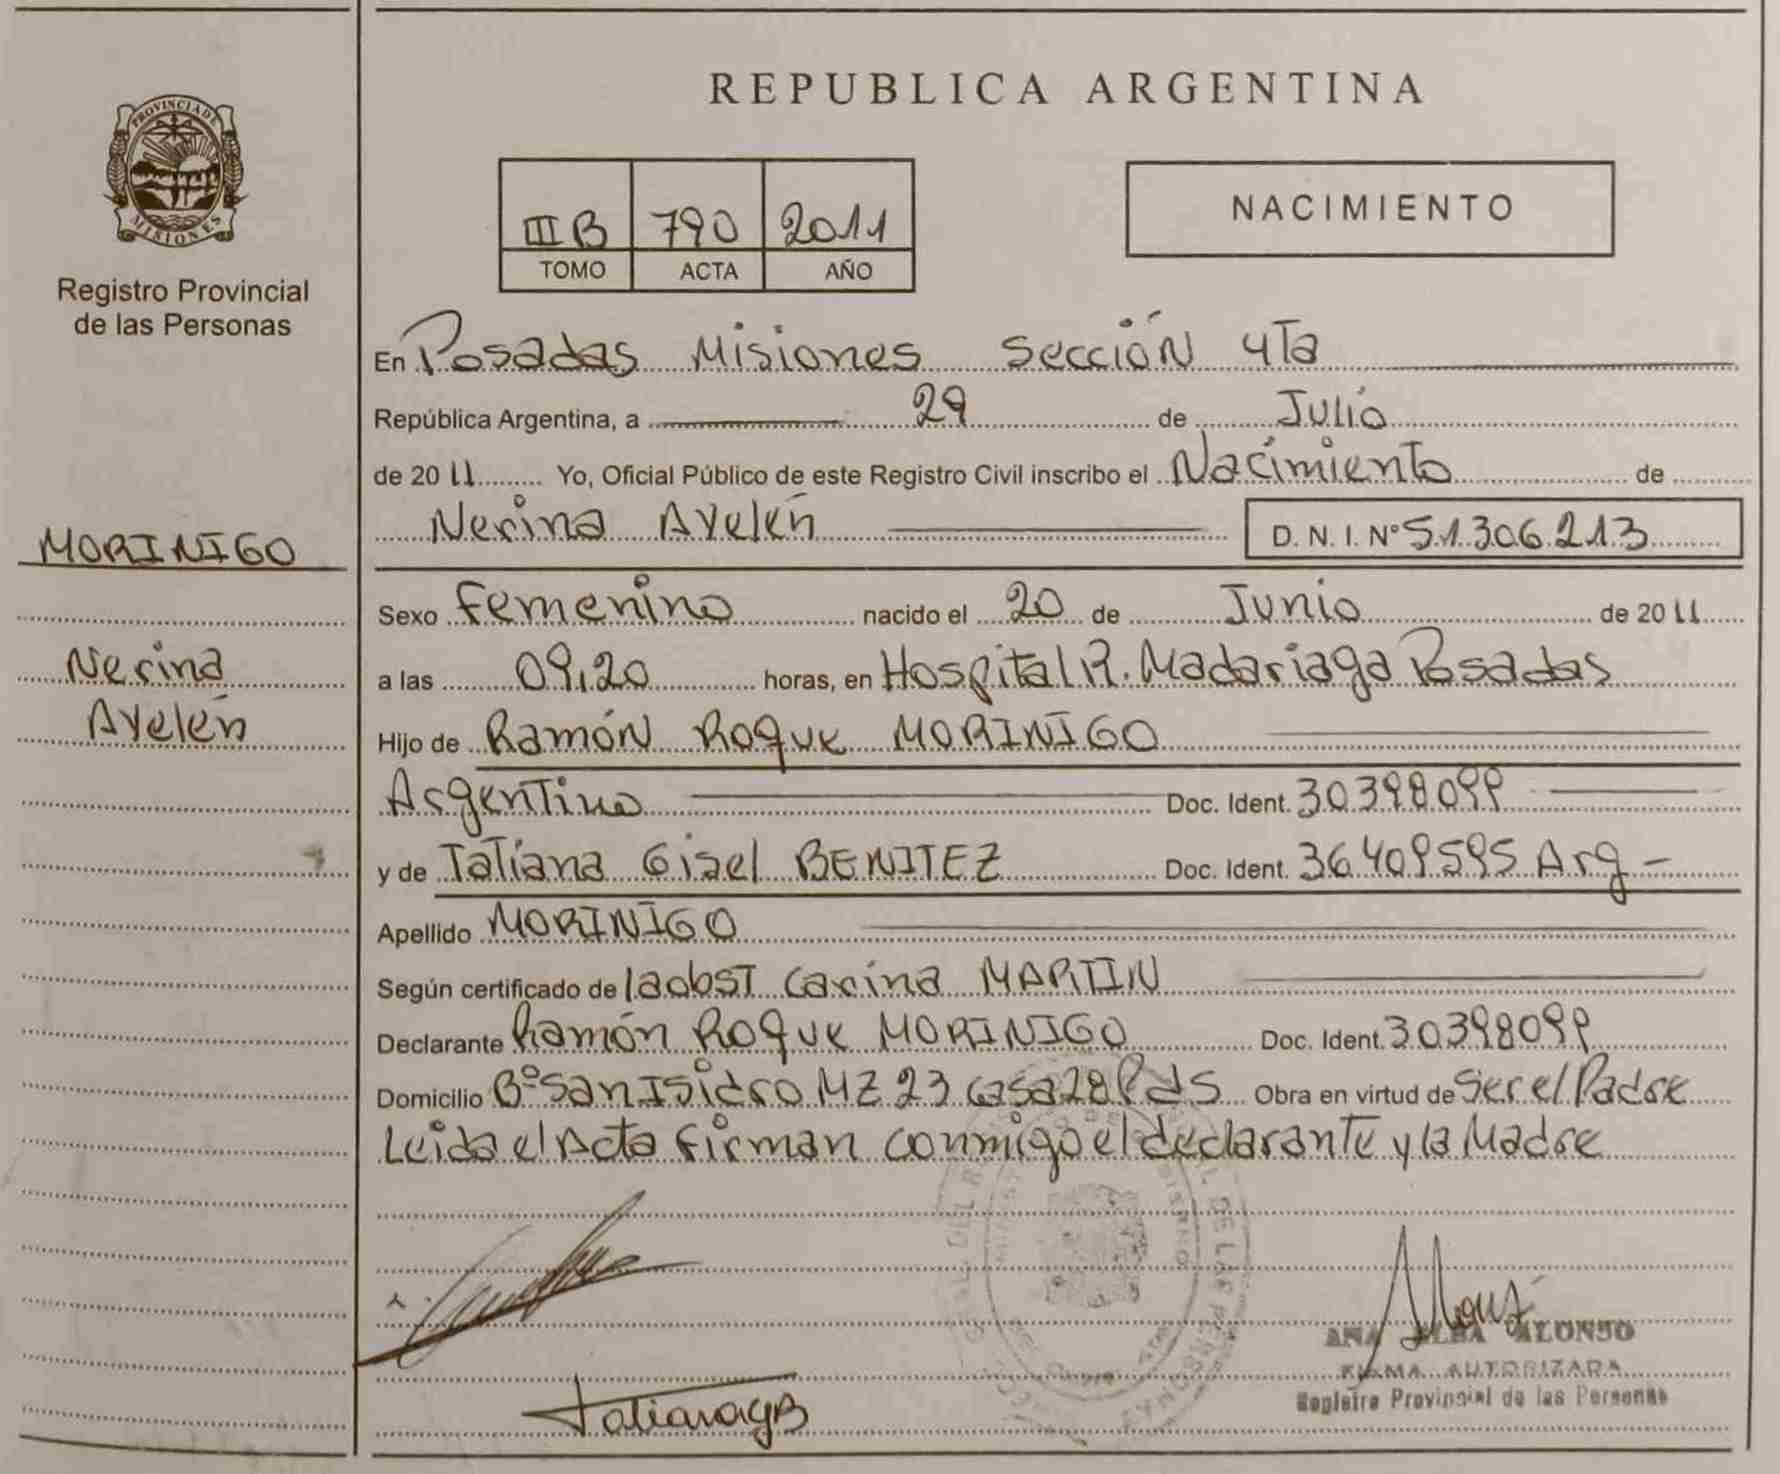 PROVINCIA DE
MISIONES
Registro Provincial
de las Personas
MORINIGO
Nerina
Ayelén
REPUBLICA ARGENTINA
III B 790 2011
TOMO ACTA AÑO
NACIMIENTO
En Posadas Misiones Sección 4Ta
República Argentina, a 29 de Julio
de 2011 Yo, Oficial Público de este Registro Civil inscribo el Nacimiento de
Nerina Ayelén D. N. I. Nº 51.306.213
Sexo Femenino nacido el 20 de Junio de 2011
a las 09,20 horas, en Hospital R. Madariaga Posadas
Hijo de Ramón Roque MORINIGO
Argentino Doc. Ident. 30398099
y de Tatiana Gisel BENITEZ Doc. Ident. 36409595 Arg -
Apellido MORINIGO
Según certificado de la obst Carina MARTIN
Declarante Ramón Roque MORINIGO Doc. Ident. 30398099
Domicilio Bº San Isidro MZ 23 casa 28 Pds Obra en virtud de Ser el Padre
Leida el Acta firman conmigo el declarante y la Madre
ANA ALBA ALONSO
FIRMA AUTORIZADA
Registro Provincial de las Personas
TatianaGB